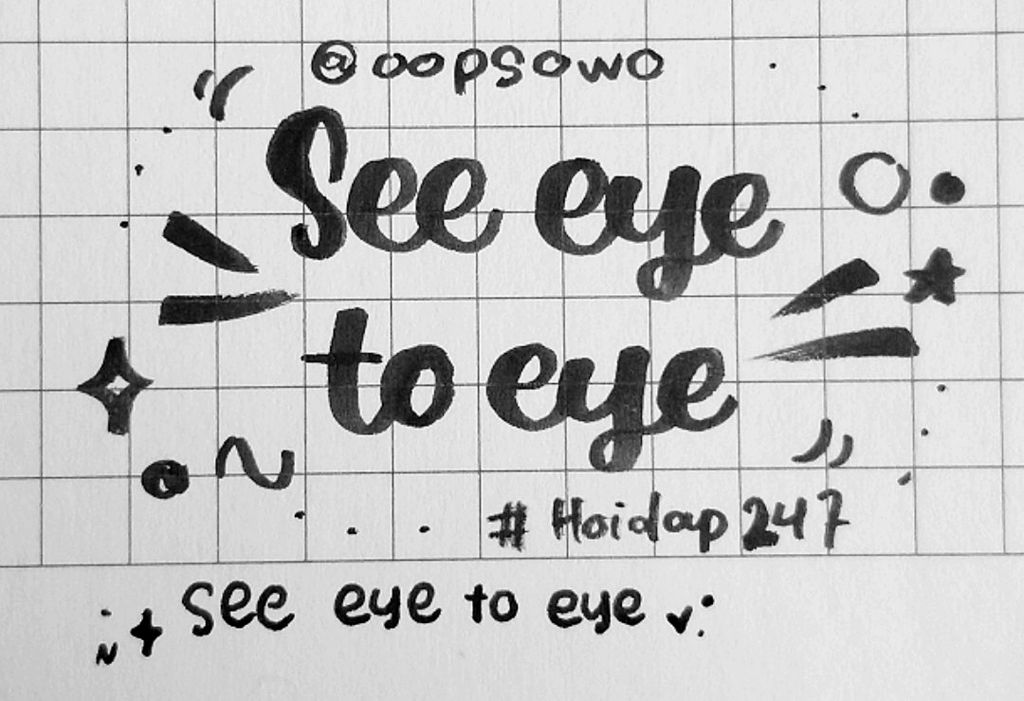 @oopsowo
See eye
to eye
#Hoidap247
see eye to eye